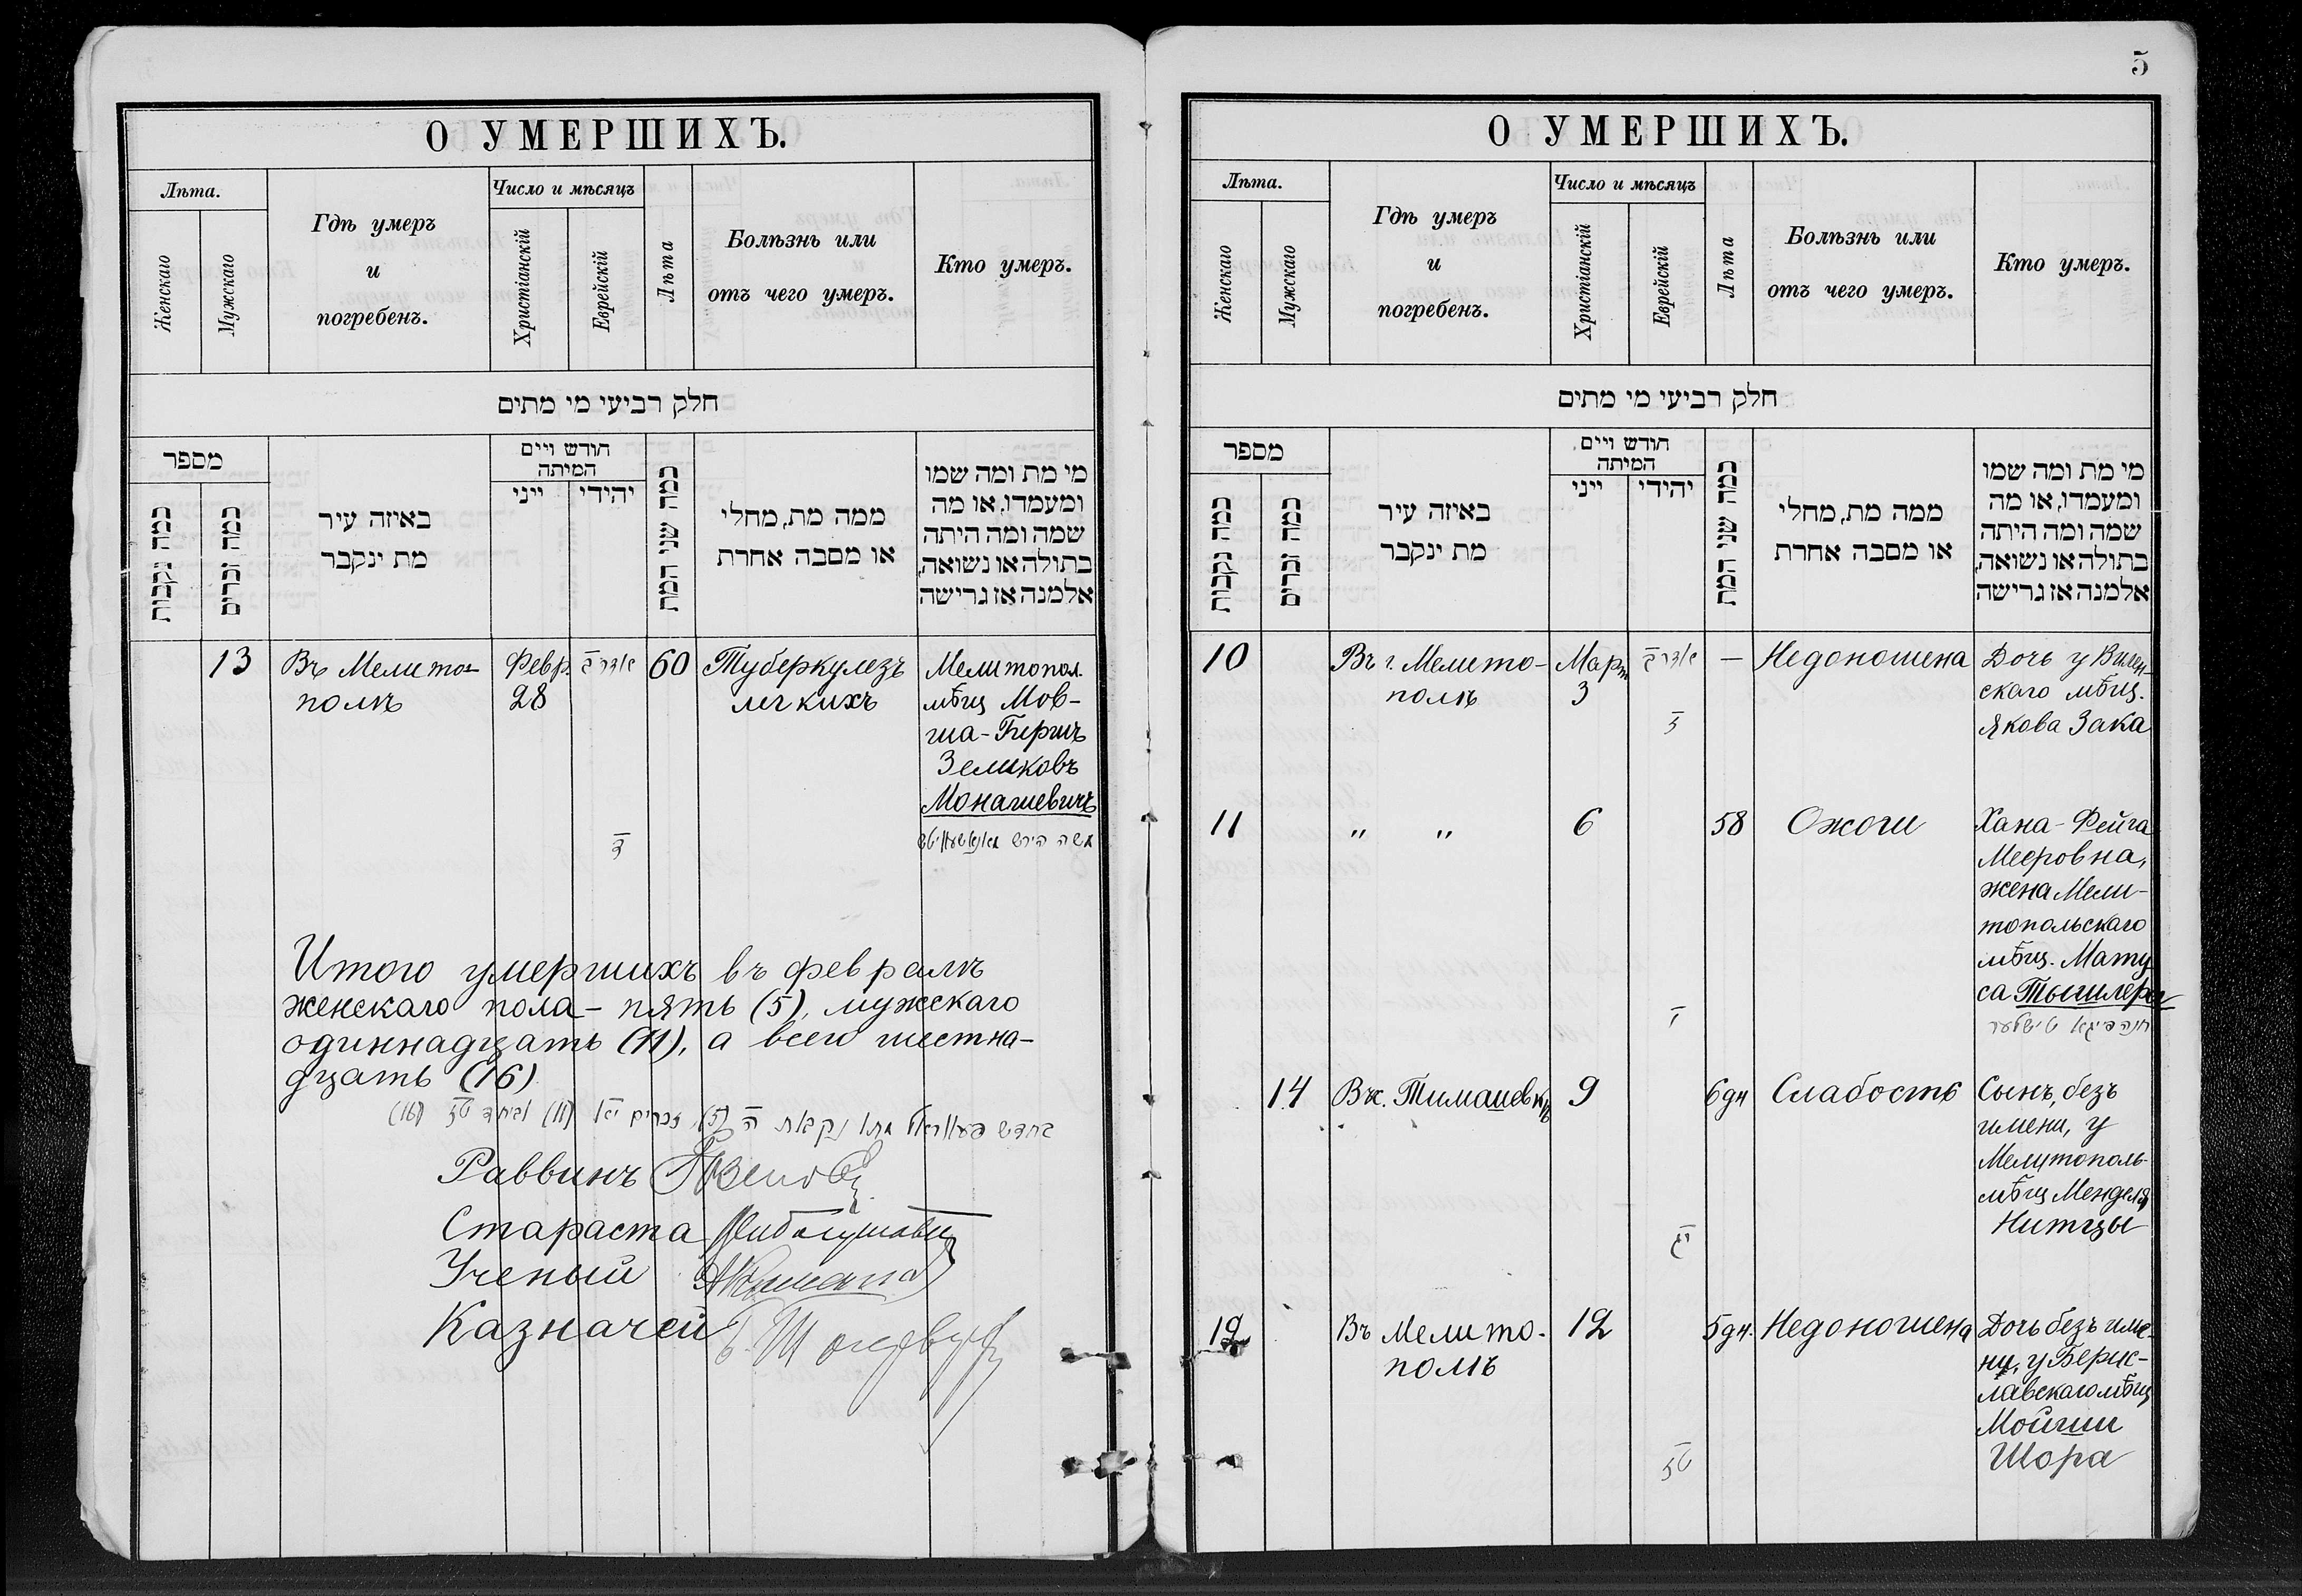 О УМЕРШИХЪ.
Лѣта.
Женскаго
Мужскаго
Гдѣ умеръ
и
погребенъ.
Число и мѣсяцъ
Христіанскій
Еврейскій
Лѣта
Болѣзнь или
отъ чего умеръ.
Кто умеръ.
חלק רביעי מי מתים
מספר
כמה נקבות
כמה זכרים
באיזה עיר
מת ינקבר
חודש ויים
המיתה
ייני
יהידי
כמה שני המת
ממה מת, מחלי
או מסבה אחרת
מי מת ומה שמו
ומעמדו, או מה
שמה ומה היתה
בתולה או נשואה,
אלמנה אז גרישה
13
Въ Мелито-
полѣ
Февр.
28
60
Туберкулезъ
легкихъ
Мелитопол.
мѣщ Мов-
ша-Гиршъ
Зеликовъ
Монашевичъ
Итого умершихъ въ февралѣ
женскаго пола - пять (5), мужскаго
одиннадцать (11), а всего шестна-
дцать (16)
Раввинъ
Стараста
Ученый
Казначей
5
О УМЕРШИХЪ.
Лѣта.
Женскаго
Мужскаго
Гдѣ умеръ
и
погребенъ.
Число и мѣсяцъ
Христіанскій
Еврейскій
Лѣта
Болѣзнь или
отъ чего умеръ.
Кто умеръ.
חלק רביעי מי מתים
מספר
כמה נקבות
כמה זכרים
באיזה עיר
מת ינקבר
חודש ויים
המיתה
ייני
יהידי
כמה שני המת
ממה מת, מחלי
או מסבה אחרת
מי מת ומה שמו
ומעמדו, או מה
שמה ומה היתה
בתולה או נשואה,
אלמנה אז גרישה
10
Въ г. Мелито-
полѣ
Март
3
—
Недоношена
Дочь у Вилен-
скаго мѣщ.
Якова Зака
11
" "
6
58
Ожоги
Хана-Фейга
Мееровна,
жена Мели-
топольскаго
мѣщ. Мату-
са Тышлера
חנה פיגא טישלער
14
Въ с. Тимашевкѣ
9
6 дн
Слабость
Сынъ, безъ
имени, у
Мелитополь-
мѣщ Менделя
Нитцы
יג
12
Въ Мелито-
полѣ
12
5 дн.
Недоношена
Дочь безъ име-
ни, у Берис-
лавскаго мѣщ
Мойши
Шора
טז